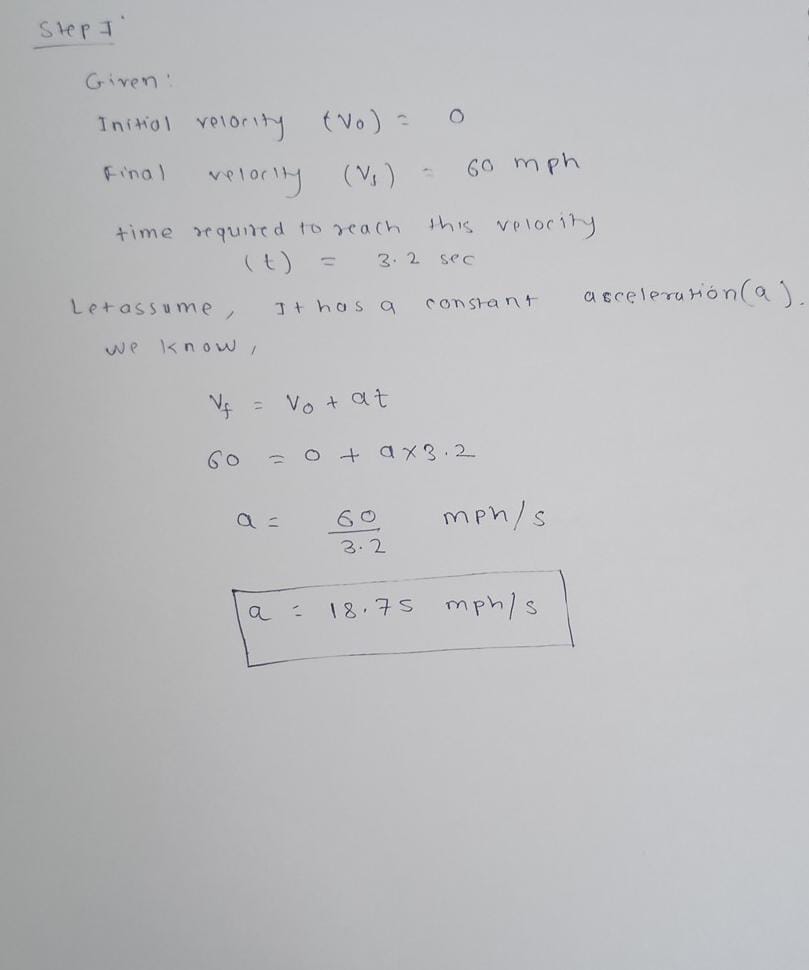 Step I
Given:
Initial velocity (V₀) = 0
Final velocity (Vf) = 60 mph
time required to reach this velocity
(t) = 3.2 sec
Let assume, It has a constant acceleration (a).
We know,
Vf = V₀ + at
60 = 0 + a×3.2
a = 60/3.2 mph/s
a = 18.75 mph/s